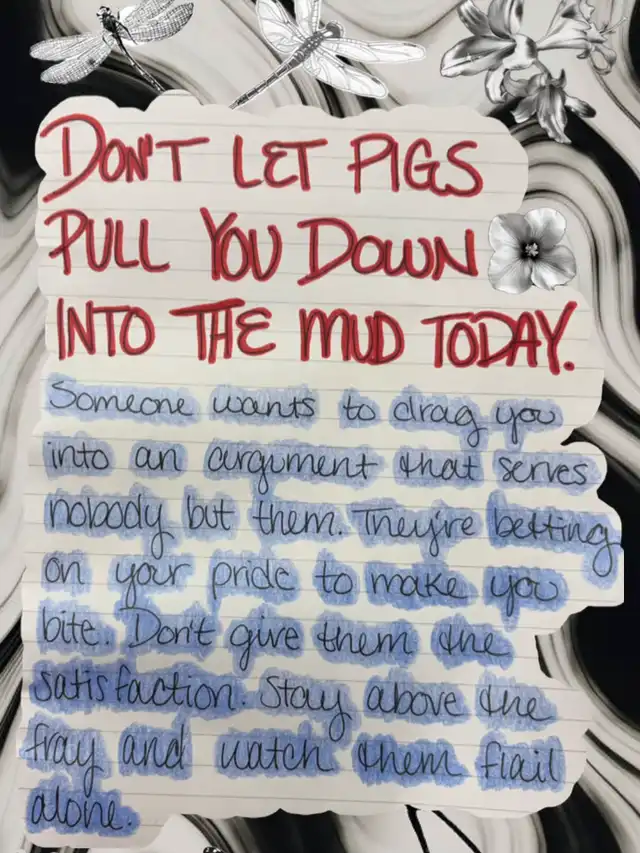 DON'T LET PIGS
PULL YOU DOWN
INTO THE MUD TODAY.
Someone wants to drag you
into an argument that serves
nobody but them. They're betting
on your pride to make you
bite. Don't give them the
satisfaction. Stay above the
fray and watch them flail
alone.